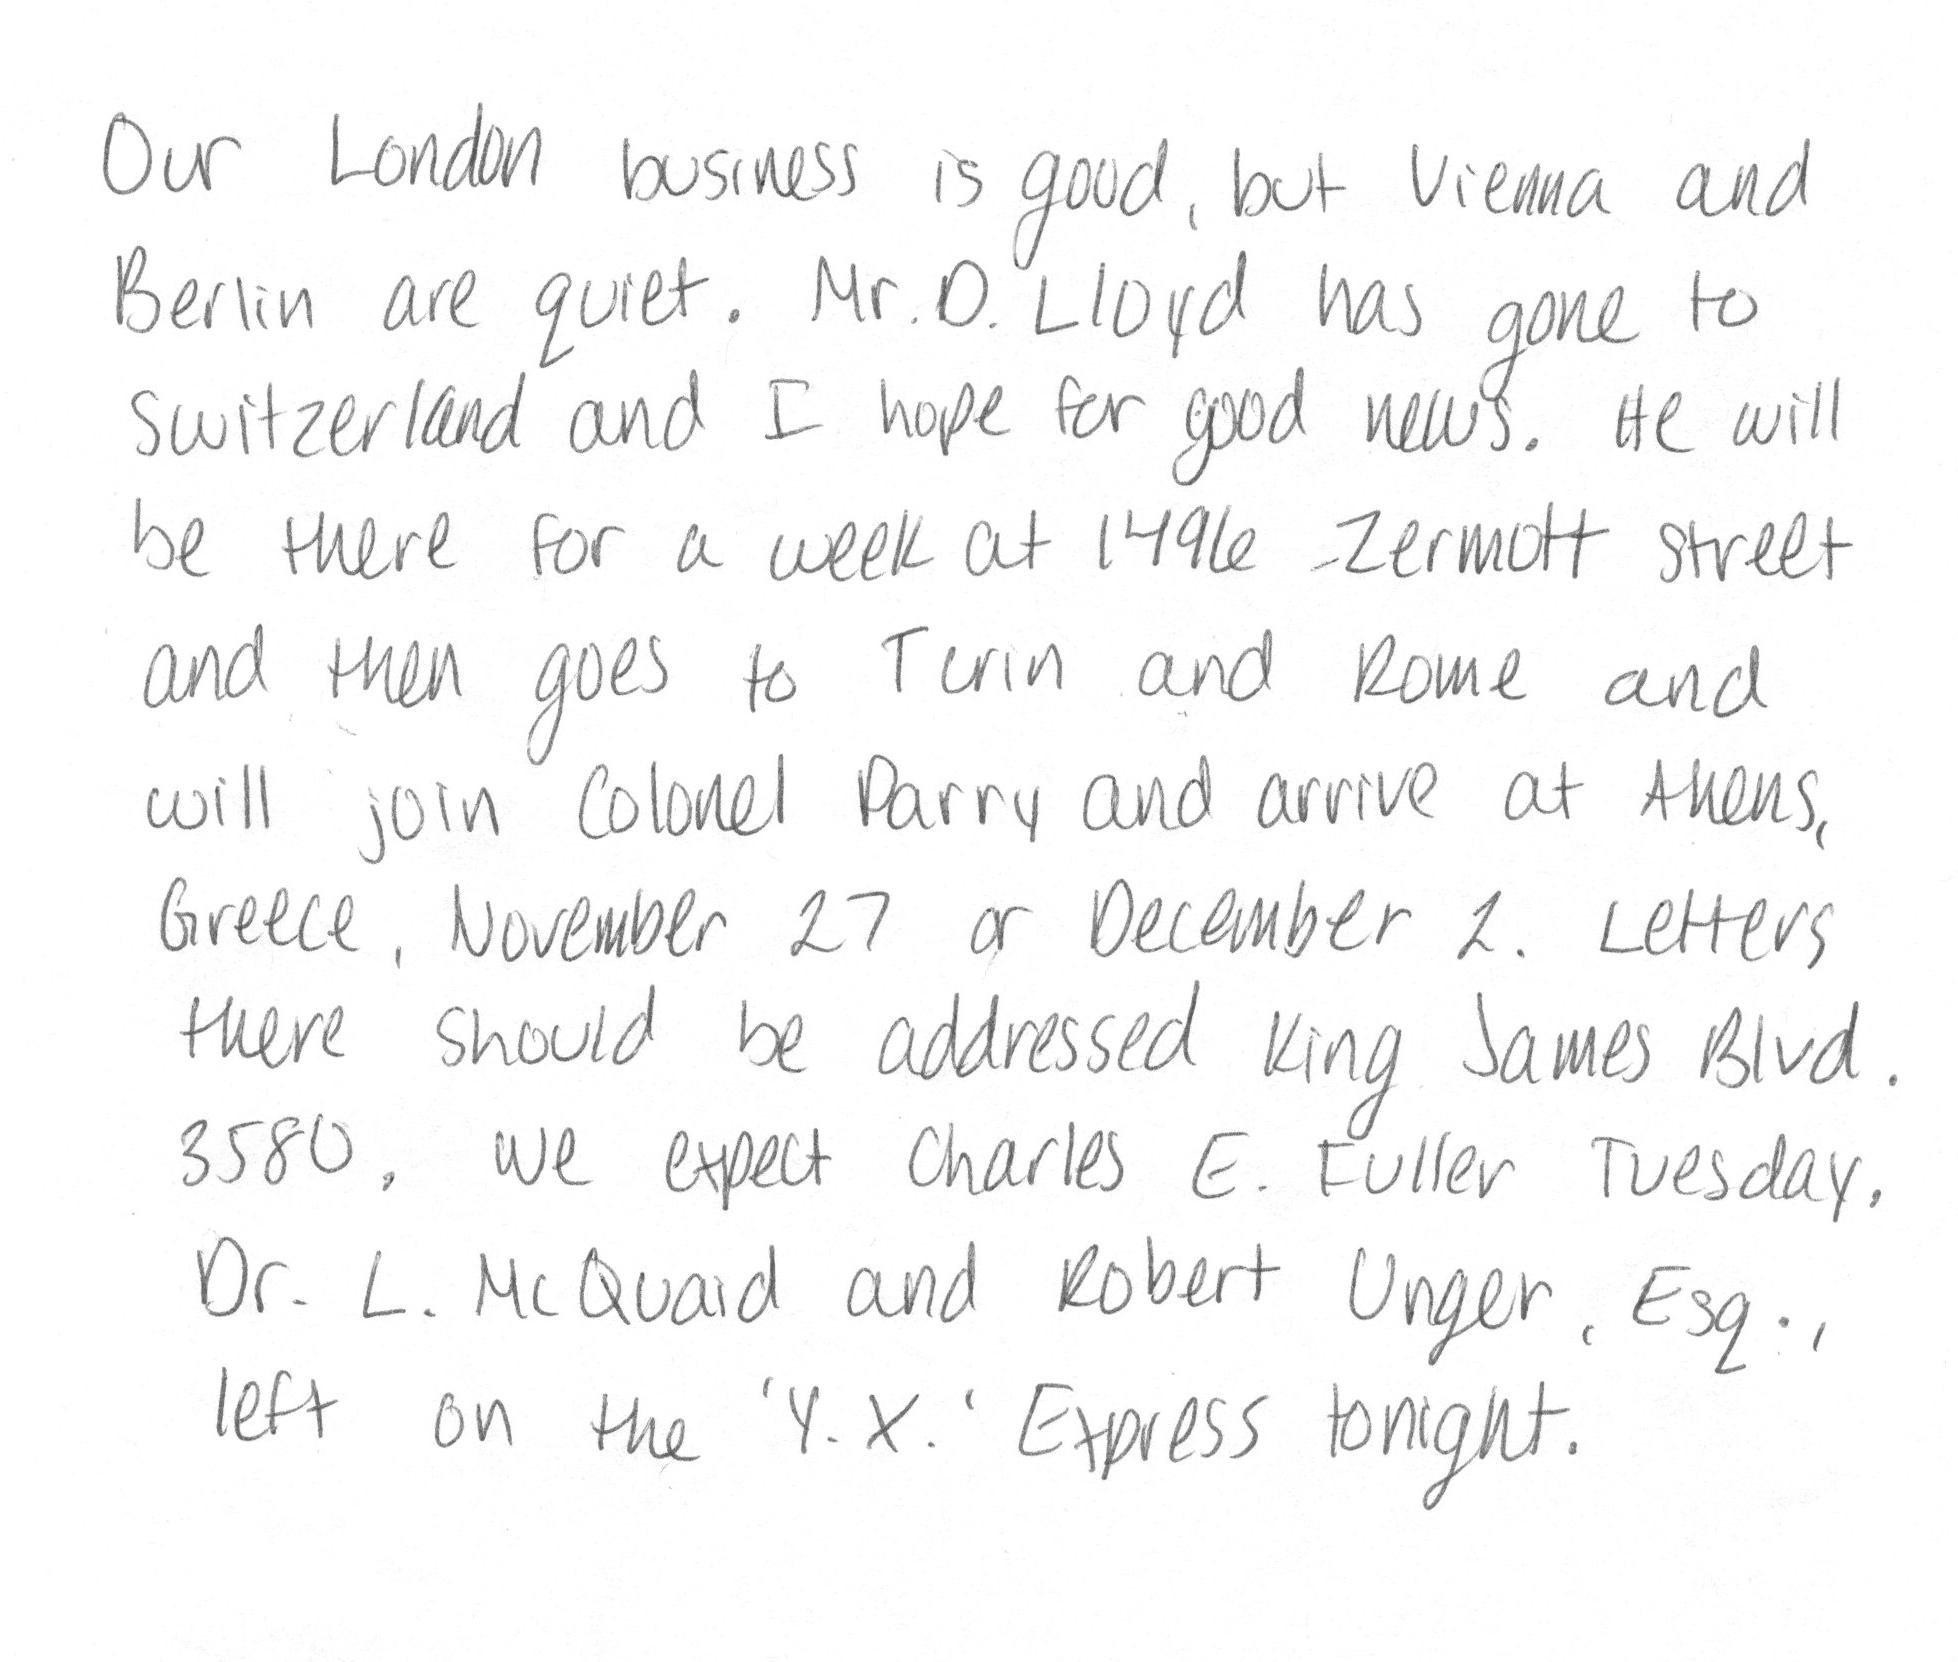 Our London business is good, but Vienna and
Berlin are quiet. Mr. D. Lloyd has gone to
Switzerland and I hope for good news. He will
be there for a week at 1496 Zermott street
and then goes to Turin and Rome and
will join Colonel Parry and arrive at Athens,
Greece, November 27 or December 2. Letters
there should be addressed King James Blvd.
3580. We expect Charles E. Fuller Tuesday.
Dr. L. McQuaid and Robert Unger, Esq.,
left on the 'Y.X.' Express tonight.